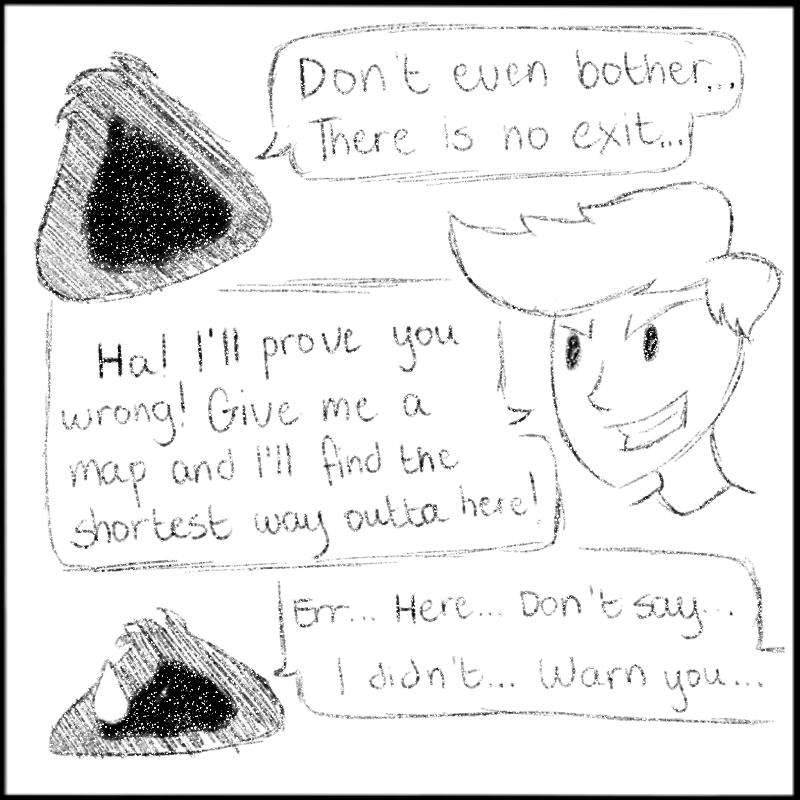 Don't even bother...
There is no exit...
Ha! I'll prove you
wrong! Give me a
map and I'll find the
shortest way outta here!
Err... Here... Don't say...
I didn't... Warn you...